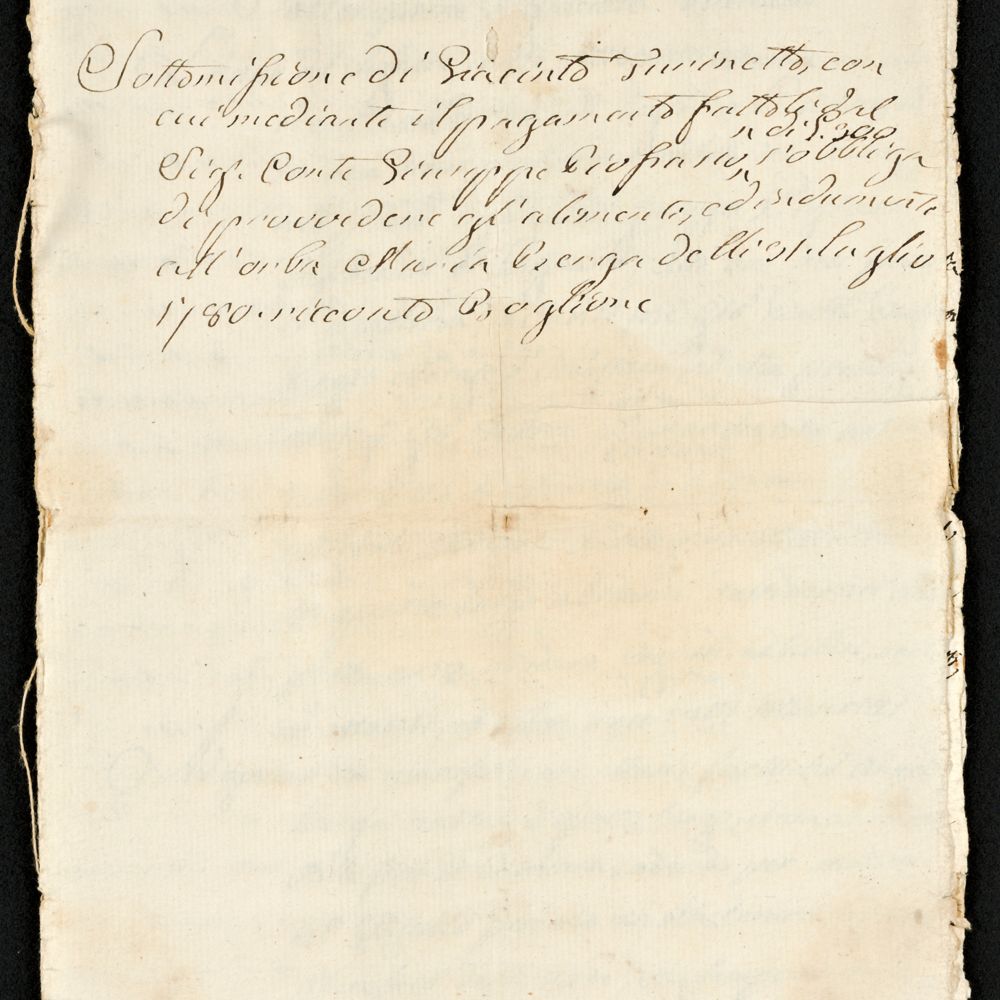 Sottomissione di Giacinto Turinetto, con
cui mediante il pagamento fattoli dal
Sig.r Conte Giuseppe Piossasco, ^ di L. 300 ^ s'obbliga
di provvedere agl'alimenti, ed indumenti
all'orba Maria Brenga delli 31. luglio
1780. ricevuto Boglione